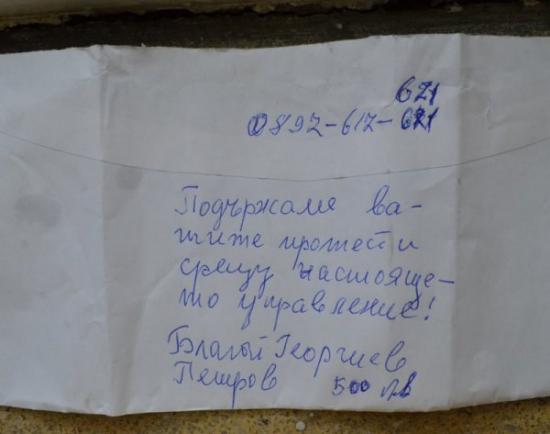 621
0892-612-621
Подържаме ва-
шиже протести
срещу настояще-
то управление!
Благой Георгиев
Петров 500 лв